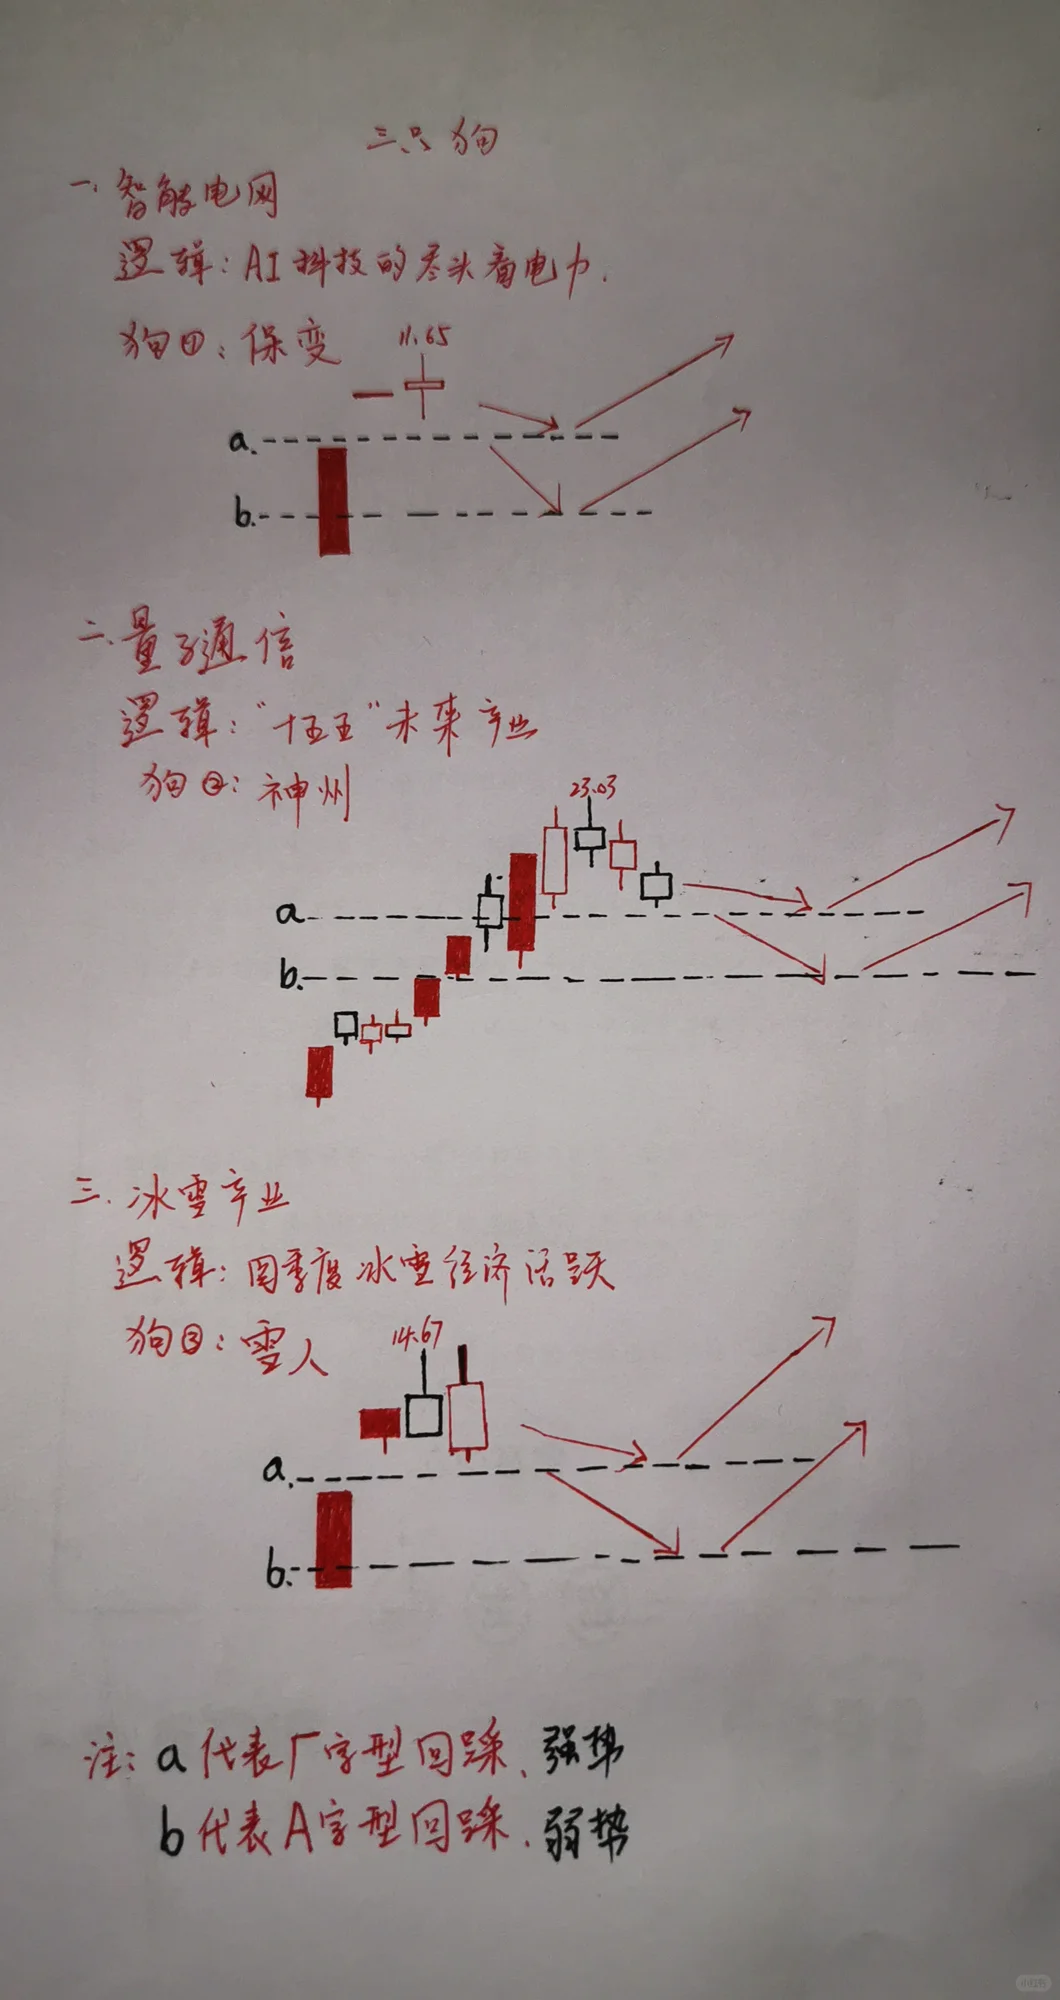 三只狗
一.智能电网
逻辑:AI科技的尽头看电力.
狗①:保变
11.65
a.
b.
二.量子通信
逻辑:“十五五”未来产业
狗②:神州
23.03
a
b.
三.冰雪产业
逻辑:四季度冰雪经济活跃
狗③:雪人
14.67
a.
b.
注:a代表厂字型回踩、强势
b代表A字型回踩、弱势
小红书